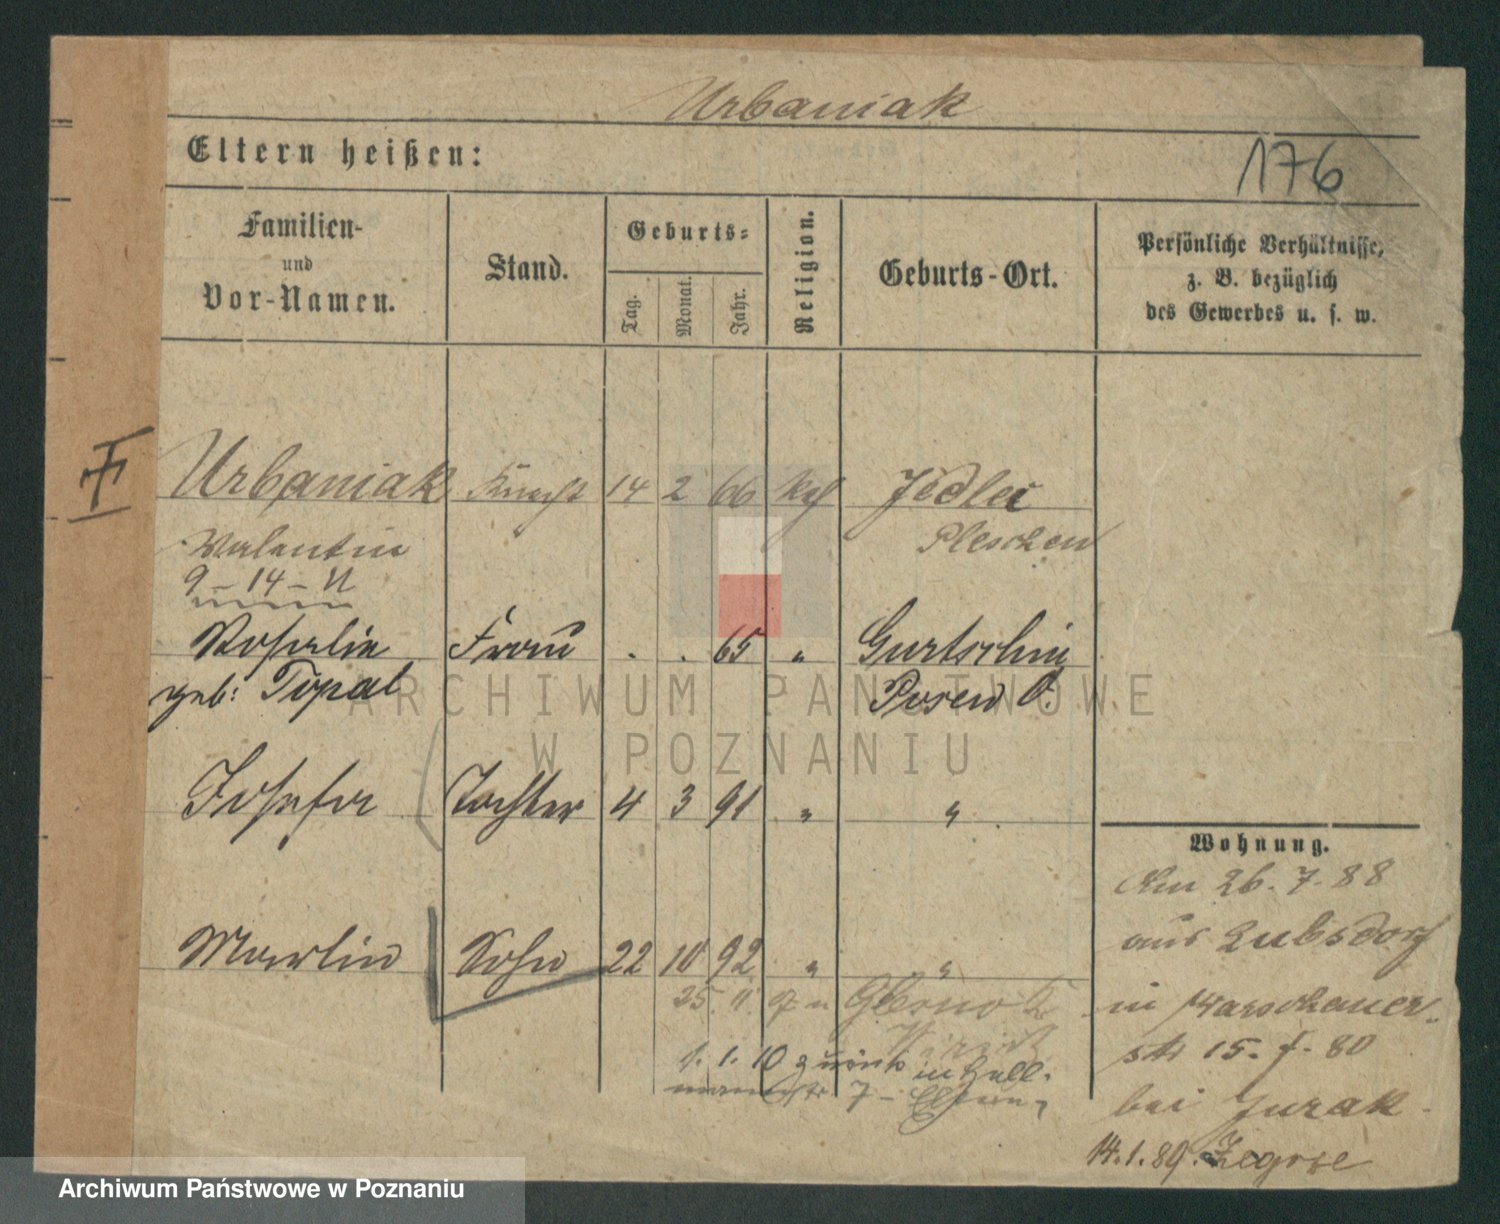 Urbaniak
Eltern heißen:
176
Familien-
und
Vor-Namen.
Stand.
Geburts-
Tag.
Monat.
Jahr.
Religion.
Geburts-Ort.
Persönliche Verhältnisse,
z. B. bezüglich
des Gewerbes u. s. w.
F
Urbaniak Knecht 14 2 66 Kath Jedlec
Valentin Pleschen
9 – 14 – 11
Rosalie Frau . . 65 " Gurtschin
geb: Topal Posen O.
Josefa Tochter 4 3 91 " "
Martin Sohn 22 10 92 " "
25. 11. 97 n Glowno
1. 1. 10 zurück in Hall-
mannstr 7 –
Wohnung.
Am 26. 7. 88
aus Lubsdorf
in Warschauer-
str 15. f. 80
bei Jurak
14. 1. 89. Zegrze
ARCHIWUM PAŃSTWOWE
W POZNANIU
Archiwum Państwowe w Poznaniu